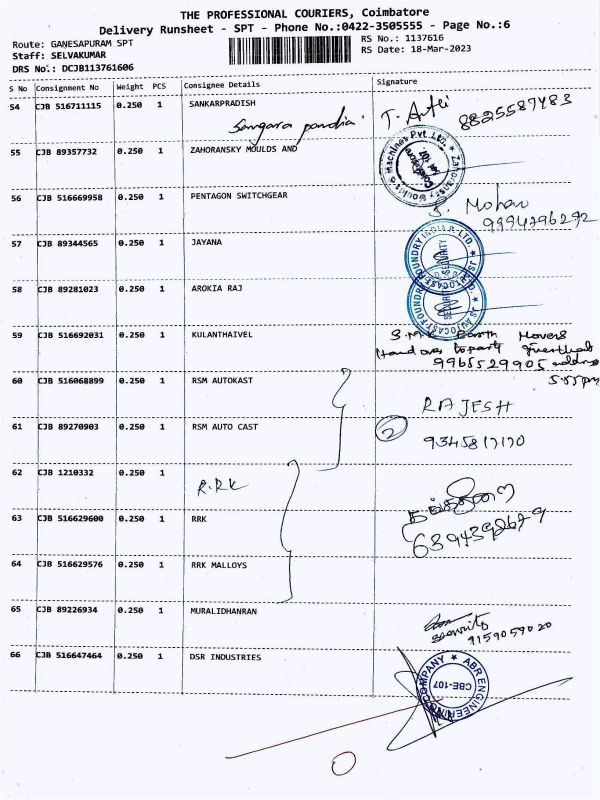 THE PROFESSIONAL COURIERS, Coimbatore
Delivery Runsheet - SPT - Phone No.:0422-3505555 - Page No.:6
Route: GANESAPURAM SPT
RS No.: 1137616
Staff: SELVAKUMAR
RS Date: 18-Mar-2023
DRS No.: DCJB113761606
S No Consignment No Weight PCS Consignee Details Signature
54 CJB 516711115 0.250 1 SANKARPRADISH
8825587483
55 CJB 89357732 0.250 1 ZAHORANSKY MOULDS AND
56 CJB 516669958 0.250 1 PENTAGON SWITCHGEAR
Mohan
9994796292
57 CJB 89344565 0.250 1 JAYANA
58 CJB 89281023 0.250 1 AROKIA RAJ
59 CJB 516692031 0.250 1 KULANTHAIVEL
Earth Movers
9965529905
5.55pm
60 CJB 516068899 0.250 1 RSM AUTOKAST
RAJESH
61 CJB 89270903 0.250 1 RSM AUTO CAST
2
62 CJB 1210332 0.250 1 R.R.K
63 CJB 516629600 0.250 1 RRK
64 CJB 516629576 0.250 1 RRK MALLOYS
65 CJB 89226934 0.250 1 MURALIDHANRAN
security
9159059020
66 CJB 516647464 0.250 1 DSR INDUSTRIES
ABR ENGINEERING COMPANY
CBE-107